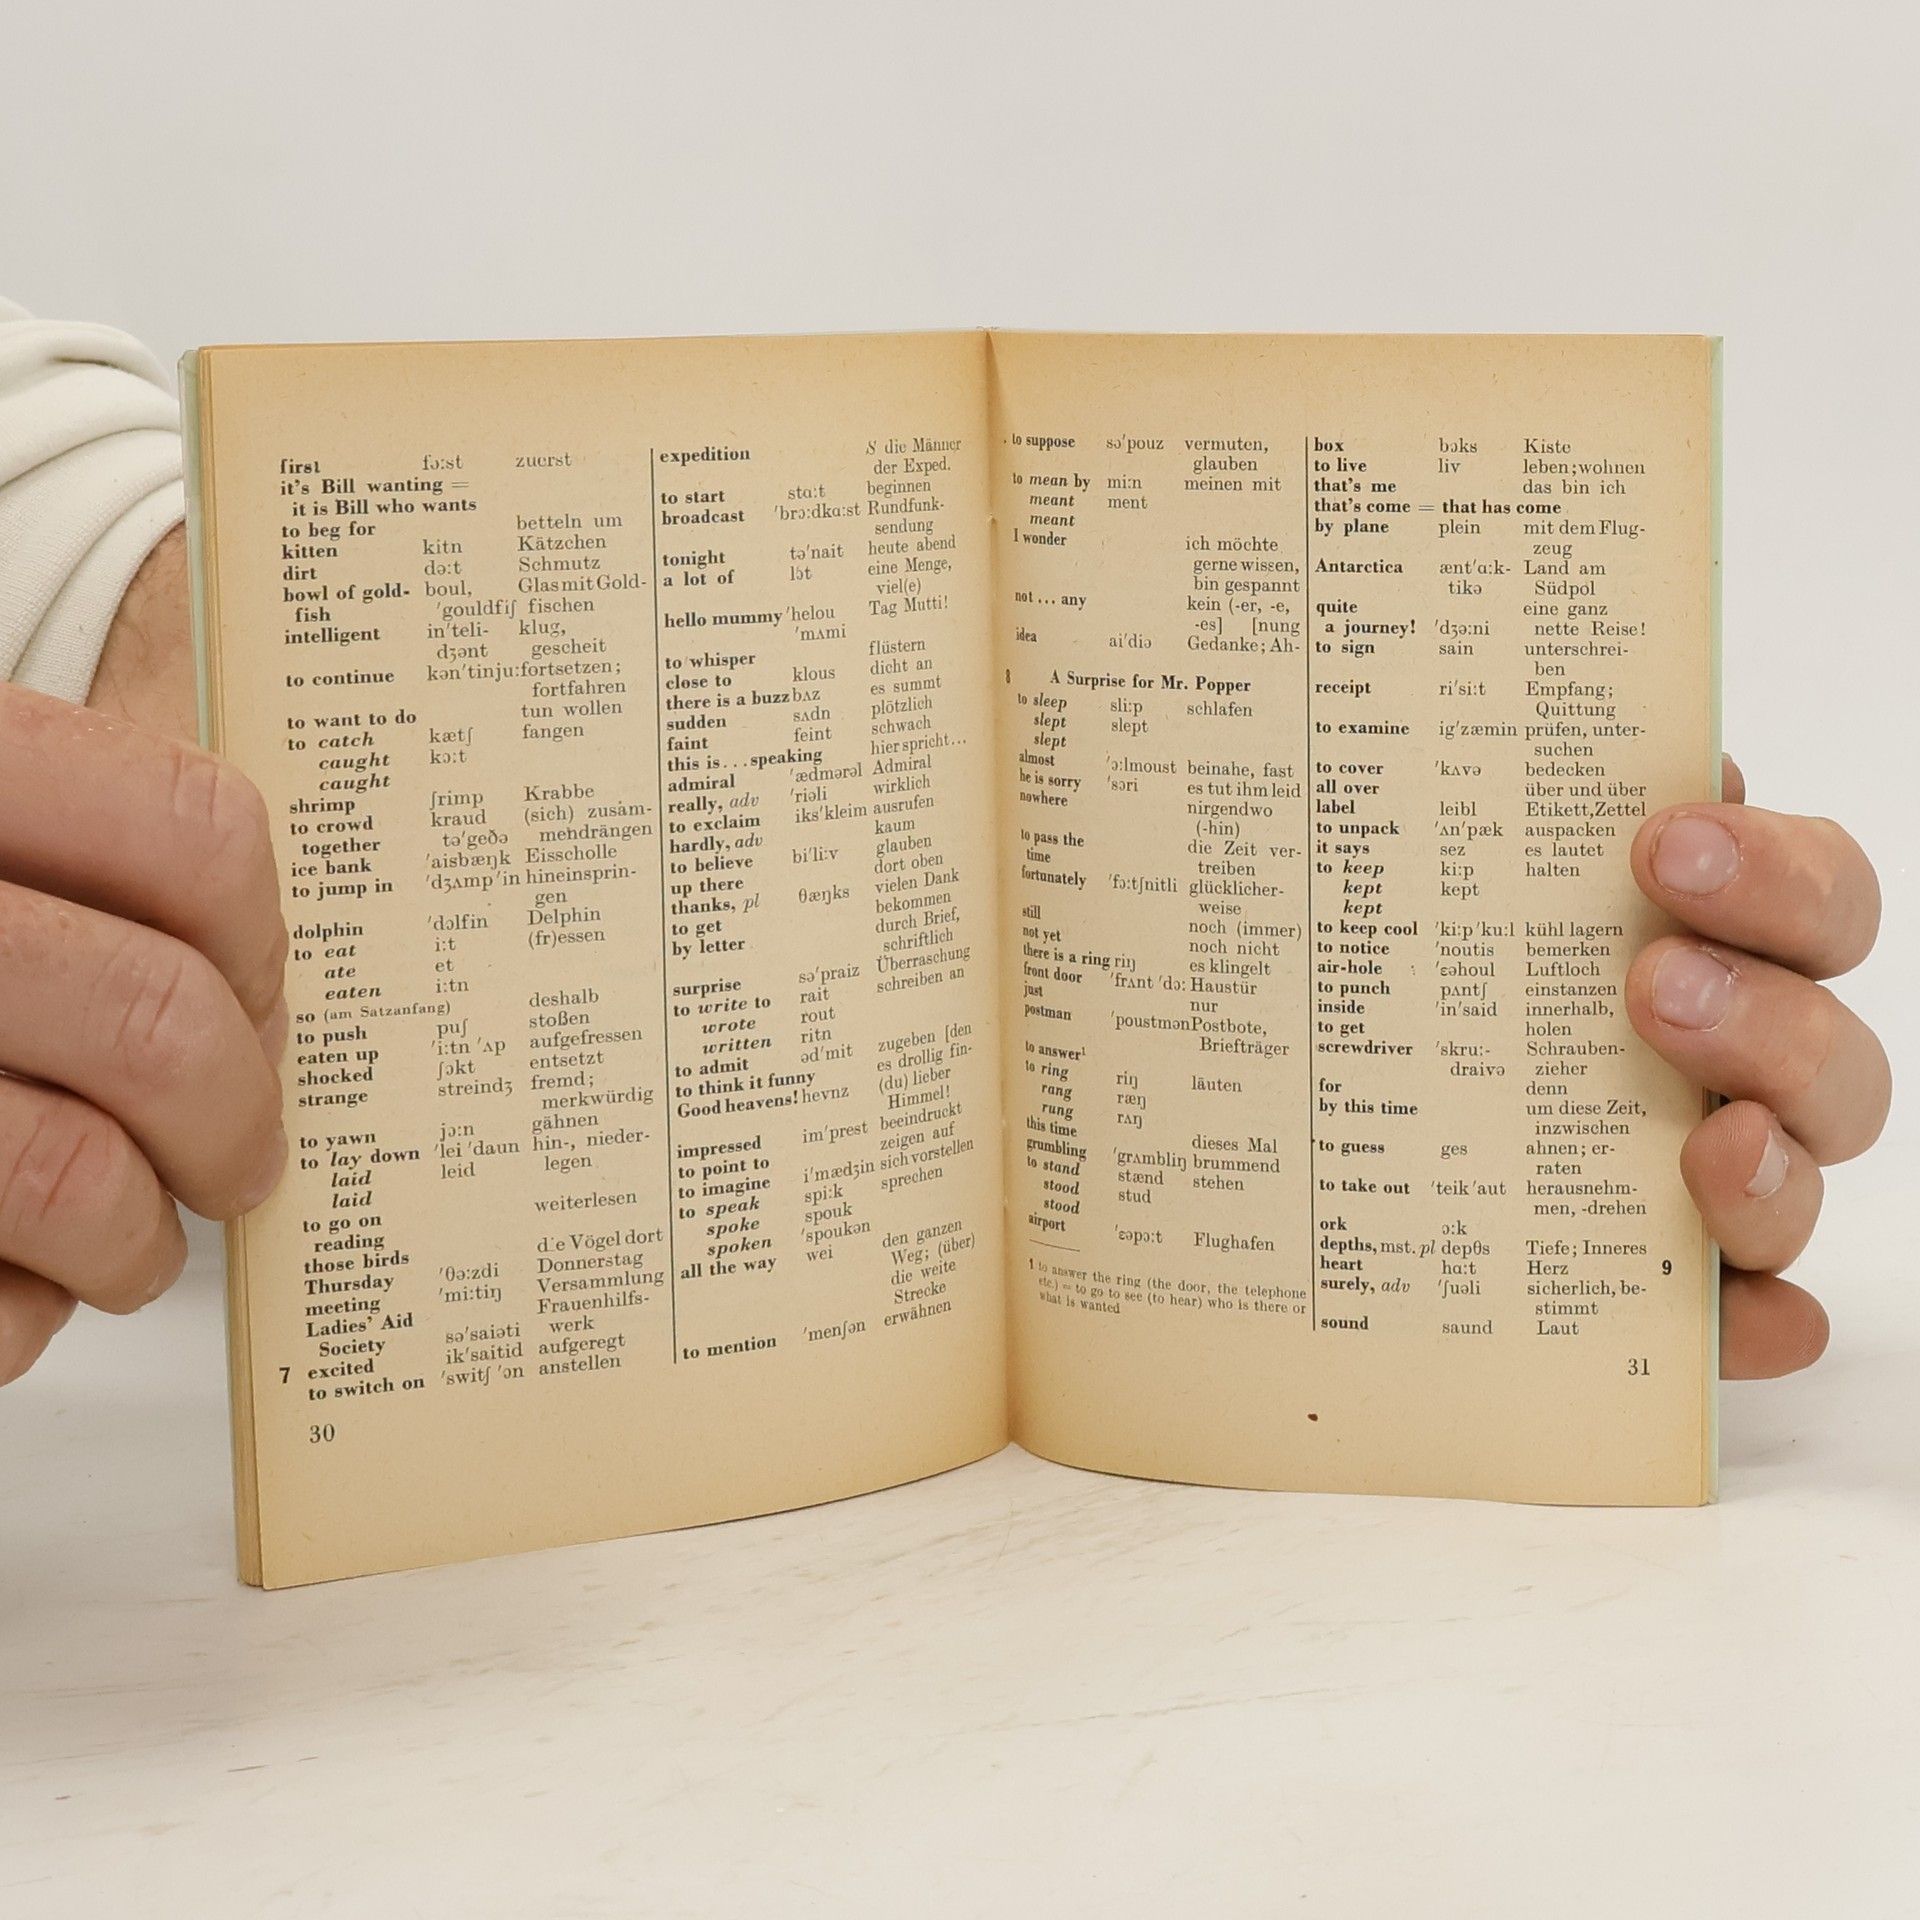 first fə:st zuerst
it's Bill wanting =
it is Bill who wants
to beg for betteln um
kitten kitn Kätzchen
dirt də:t Schmutz
bowl of gold- boul, Glas mit Gold-
fish 'gouldfiʃ fischen
intelligent in'teli- klug,
dʒənt gescheit
to continue kən'tinju: fortsetzen;
fortfahren
to want to do tun wollen
to catch kætʃ fangen
caught kɔ:t
caught
shrimp ʃrimp Krabbe
to crowd kraud (sich) zusam-
together tə'geðə mendrängen
ice bank 'aisbæŋk Eisscholle
to jump in 'dʒʌmp 'in hineinsprin-
gen
dolphin 'dɔlfin Delphin
to eat i:t (fr)essen
ate et
eaten i:tn
so (am Satzanfang) deshalb
to push puʃ stoßen
eaten up 'i:tn 'ʌp aufgefressen
shocked ʃɔkt entsetzt
strange streindʒ fremd;
merkwürdig
to yawn jɔ:n gähnen
to lay down 'lei 'daun hin-, nieder-
laid leid legen
laid
to go on weiterlesen
reading
those birds die Vögel dort
Thursday 'θə:zdi Donnerstag
meeting 'mi:tiŋ Versammlung
Ladies' Aid Frauenhilfs-
Society sə'saiəti werk
7 excited ik'saitid aufgeregt
to switch on 'switʃ 'ɔn anstellen
30
expedition S die Männer
der Exped.
to start stɑ:t beginnen
broadcast 'brɔ:dkɑ:st Rundfunk-
sendung
tonight tə'nait heute abend
a lot of lɔt eine Menge,
viel(e)
hello mummy 'helou Tag Mutti!
'mʌmi
to whisper flüstern
close to klous dicht an
there is a buzz bʌz es summt
sudden sʌdn plötzlich
faint feint schwach
this is...speaking hier spricht...
admiral 'ædmərəl Admiral
really, adv 'riəli wirklich
to exclaim iks'kleim ausrufen
hardly, adv kaum
to believe bi'li:v glauben
up there dort oben
thanks, pl θæŋks vielen Dank
to get bekommen
by letter durch Brief,
schriftlich
surprise sə'praiz Überraschung
to write to rait schreiben an
wrote rout
written ritn
to admit əd'mit zugeben [den
to think it funny es drollig fin-
Good heavens! hevnz (du) lieber
Himmel!
impressed im'prest beeindruckt
to point to zeigen auf
to imagine i'mædʒin sich vorstellen
to speak spi:k sprechen
spoke spouk
spoken 'spoukən
all the way wei den ganzen
Weg; (über)
die weite
Strecke
to mention 'menʃən erwähnen
to suppose sə'pouz vermuten,
glauben
to mean by mi:n meinen mit
meant ment
meant
I wonder ich möchte
gerne wissen,
bin gespannt
not ... any kein (-er, -e,
-es] [nung
idea ai'diə Gedanke; Ah-
8 A Surprise for Mr. Popper
to sleep sli:p schlafen
slept slept
slept
almost 'ɔ:lmoust beinahe, fast
he is sorry 'sɔri es tut ihm leid
nowhere nirgendwo
(-hin)
to pass the die Zeit ver-
time treiben
fortunately 'fɔ:tʃnitli glücklicher-
weise
still noch (immer)
not yet noch nicht
there is a ring riŋ es klingelt
front door 'frʌnt 'dɔ: Haustür
just nur
postman 'poustmən Postbote,
Briefträger
to answer¹
to ring riŋ läuten
rang ræŋ
rung rʌŋ
this time dieses Mal
grumbling 'grʌmbliŋ brummend
to stand stænd stehen
stood stud
stood
airport 'ɛəpɔ:t Flughafen
1 to answer the ring (the door, the telephone
etc.) = to go to see (to hear) who is there or
what is wanted
box bɔks Kiste
to live liv leben; wohnen
that's me das bin ich
that's come = that has come
by plane plein mit dem Flug-
zeug
Antarctica ænt'ɑ:k- Land am
tikə Südpol
quite eine ganz
a journey! 'dʒə:ni nette Reise!
to sign sain unterschrei-
ben
receipt ri'si:t Empfang;
Quittung
to examine ig'zæmin prüfen, unter-
suchen
to cover 'kʌvə bedecken
all over über und über
label leibl Etikett, Zettel
to unpack 'ʌn'pæk auspacken
it says sez es lautet
to keep ki:p halten
kept kept
kept
to keep cool 'ki:p 'ku:l kühl lagern
to notice 'noutis bemerken
air-hole 'ɛəhoul Luftloch
to punch pʌntʃ einstanzen
inside 'in'said innerhalb,
to get holen
screwdriver 'skru:- Schrauben-
draivə zieher
for denn
by this time um diese Zeit,
inzwischen
to guess ges ahnen; er-
raten
to take out 'teik 'aut herausnehm-
men, -drehen
ork ɔ:k
depths, mst. pl depθs Tiefe; Inneres
heart hɑ:t Herz 9
surely, adv 'ʃuəli sicherlich, be-
stimmt
sound saund Laut
31